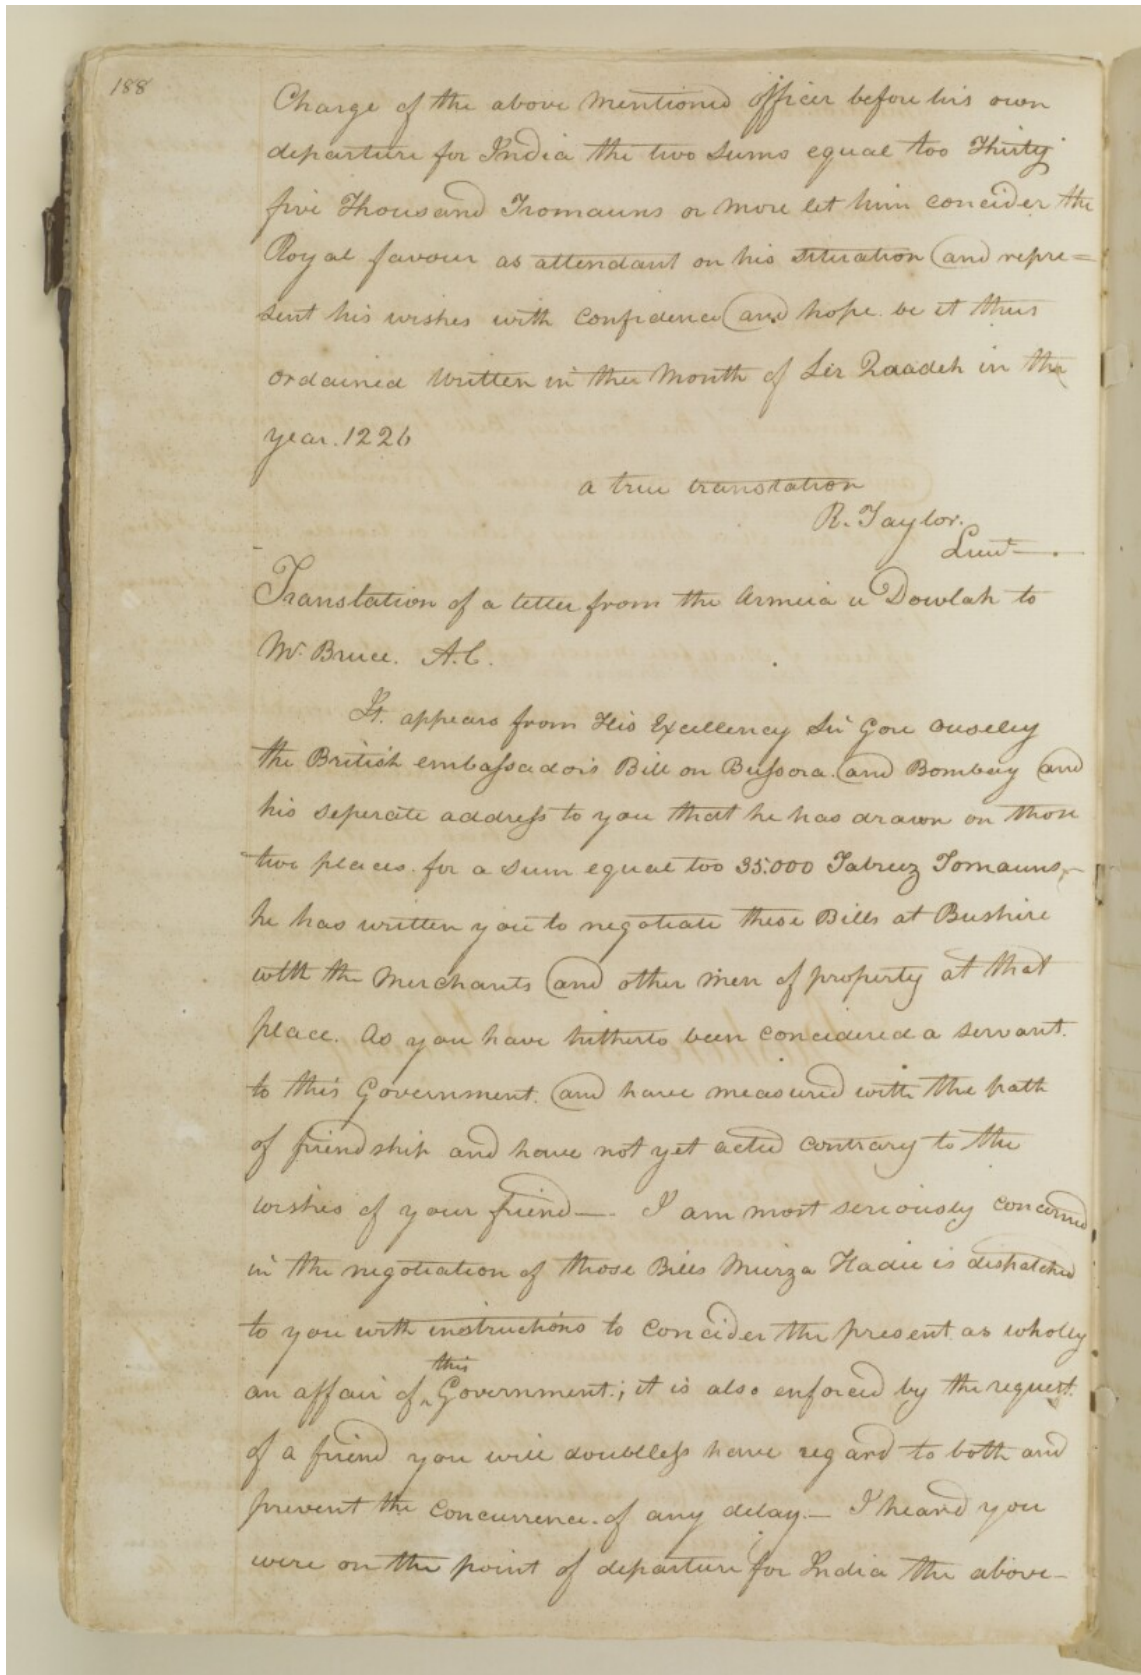 188
Charge of the above mentioned officer before his own
departure for India the two sums equal too Thirty
five Thousand Tromauns or more let him concider the
Royal favour as attendant on his situation and repre=
sent his wishes with confidence and hope. be it thus
ordained Written in thee Month of Qaadeh in the
year. 1226
a true translation
R. Taylor.
Lieut
Translation of a letter from the u Dowlah to
Mr. Bruce. A.C.
It. appears from His Excellency Sir Gore Ouseley
the British embassadois Bill on Bussora. and Bombay and
his seperate address to you that he has drawn on those
two places. for a sum equal too 35.000 Tabreez Tomauns,
he has written you to negotiate these Bills at Bushire
with the Merchants and other men of property at that
place. As you have hitherto been concidered a servant.
to this Government. and have measured with the path
of friendship and have not yet acted contrary to the
wishes of your friend —. I am most seriously concerned
in the negotiation of those Bills Meirza Hadie is dispatched
to you with instructions to concider the present. as wholly
an affair of this Government.; it is also enforced by the request.
of a friend you will doubtless have regard to both and
prevent the concurrence. of any delay.— I heard you
were on the point of departure for India the above-